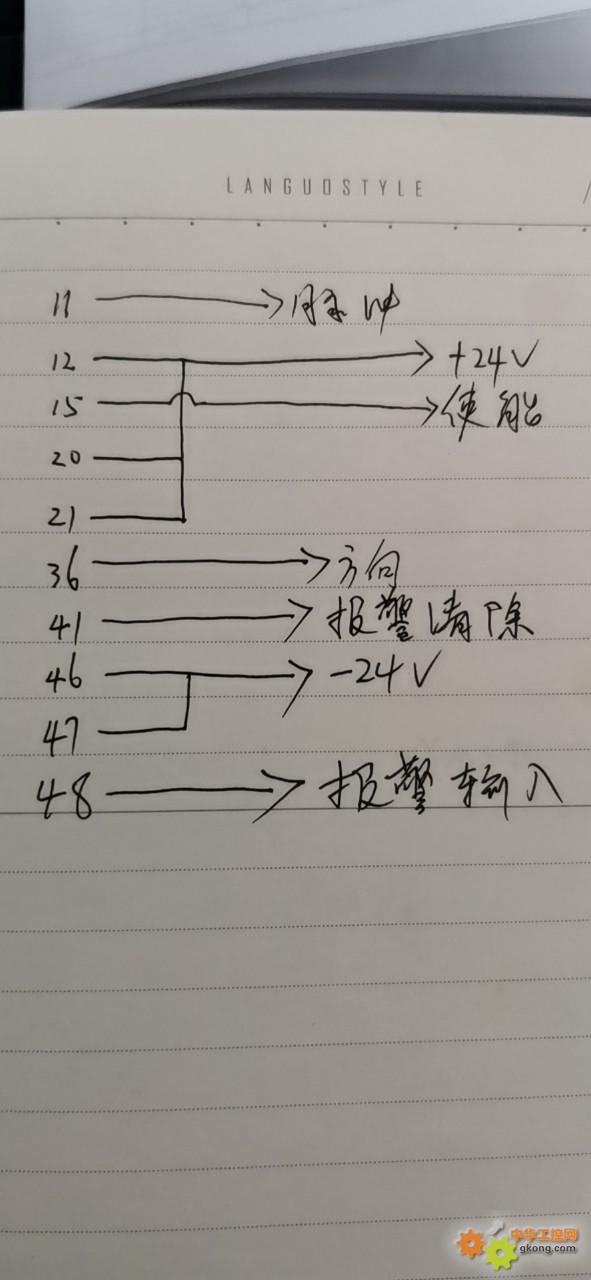 LANGUOSTYLE
11 脉冲
12 +24V
15 使能
20
21
36 方向
41 报警清除
46 -24V
47
48 报警输入
中华工控网
gkong.com